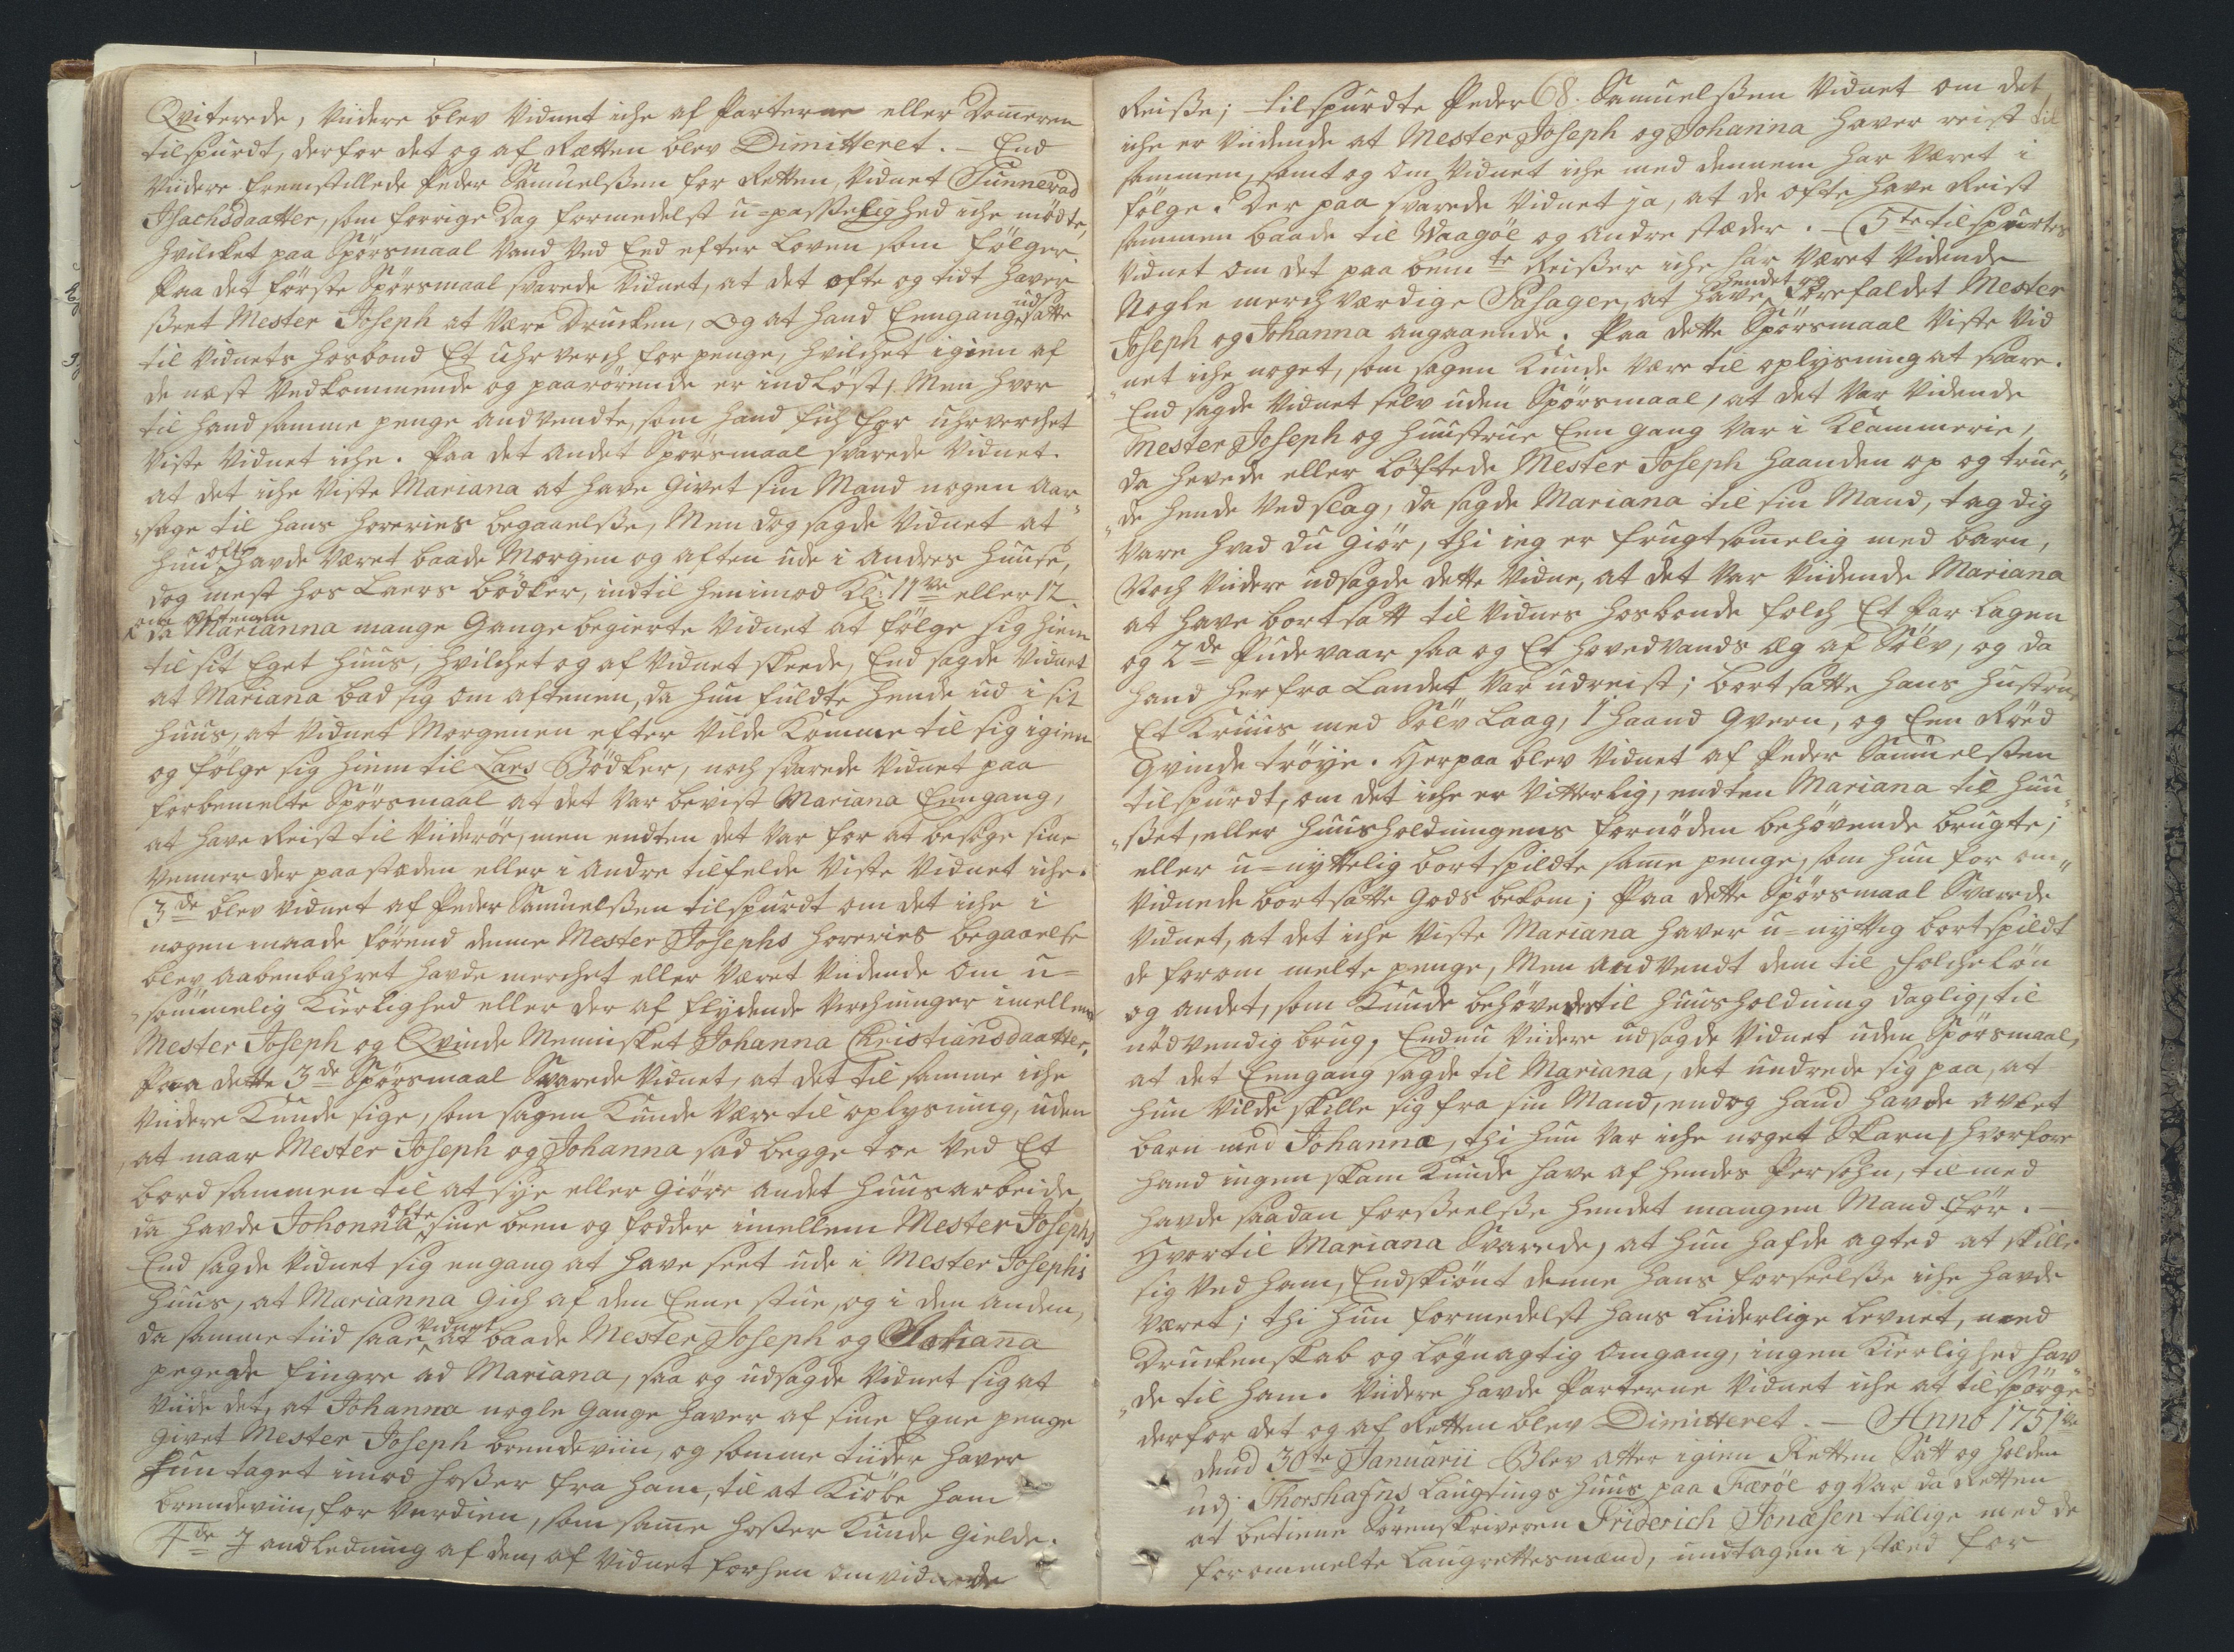 Qviterede, Viidere blev Vidnet iche af Parterne eller Dom̄eren
tilspurdt, derfor det og af Rætten blev Dimitteret. – End
Viidere fremstillede Peder Samuelsßen for Retten, Vidnet Sunnevad
Isachsdaatter, som forrige Dag formedelst u=passelighed iche mödte,
hvilchet paa Spörsmaal Vand Ved Eed efter Loven som fölger.
Paa det förste Spörsmaal svarede Vidnet, at det ofte og tidt haver
sßeet Mester Joseph at Være Drucken, Og at hand Eengang udsatte
til Vidnets Hosbond Et Uhrverch for penge, hvilchet igien af
de næst Vedkommende og paarörende er indlöst, Men hvor
til hand samme penge andvendte, som hand fich for Uhrverchet
Viste Vidnet iche. Paa det andet Spörsmaal svarede Vidnet.
at det iche Viste Mariana at have givet sin Mand nogen Aar„
„sage til hans horeries begaaelsße, Men dog sagde Vidnet at
hun ofte havde Været baade Morgen og aften ude i andres Huuse,
dog mest hos Laers Bödker, indtil henimod Kl: 11ve eller 12
om aftenen
da Marianna mange Gange begierte Vidnet at fölge sig hiem
til sit Eget Huus, hvilchet og af Vidnet skeede, End sagde Vidnet
at Mariana bad sig om aftenen, da hun fuldte hende ud i sit
Huus, at Vidnet Morgenen efter Vilde Komme til sig igien
og fölge sig hiem til Lars Bödker, noch svarede Vidnet paa
forbemelte Spörsmaal at det Var bevist Mariana Eengang,
at have Reist til Viideröe, men endten det Var for at besöge sine
Venner der paa stæden eller i andre tilfelde Viste Vidnet iche.
3de blev Vidnet af Peder Samuelsßen tilspurdt om det iche i
nogen maade förend denne Mester Josephs horeries begaaelse
blev aabenbahret havde merchet eller Været Viidende om u=
„sömmelig Kierlighed eller der af flydende Virchninger imellem
Mester Joseph og Qvinde Mennisket Johanna Christiansdaatter,
Paa dette 3de Spörsmaal Svarede Vidnet, at det til samme iche
Viidere Kunde sige, som sagen Kunde Være til oplysning, uden
at naar Mester Joseph og Johanna sad begge toe Ved Et
bord sammen til at sye eller giöre andet Huusarbeide,
da havde Johonna ofte sine been og födder imellem Mester Josephs
End sagde Vidnet sig engang at have seet ude i Mester Josephs
Huus, at Marianna gich af den Eene stue, og i den anden,
da samme tiid saae Vidnet at baade Mester Joseph og Johana
pegede fingre ad Mariana, saa og udsagde Vidnet sig at
Viide det, at Johanna nogle gange haver af sine Egne penge
givet Mester Joseph brendeviin, og somme tiider haver
hun taget imod hoßer fra ham, til at Kiöbe ham
brendeviin, for Verdien, som sam̄e hoßer Kunde gielde.
4de I andledning af den, af Vidnet forhen omvidnede
68.
Reisße; tilspurdte Peder Samuelsßen Vidnet om det
iche er Viidende at Mester Joseph og Johanna haver reist til
sammen, samt og om Vidnet iche med dennem har Været i
fölge. Der paa svarede Vidnet ja, at de ofte have Reist
sammen baade til Waagöe og andre stæder. – 5te tilspurtes
Vidnet om det paa bem̄te Reißer iche har Været Vidende
Nogle merchværdige Pasager, at have hendet og forefaldet Mester
Joseph og Johanna angaaende. Paa dette Spörsmaal Viste Vid
„net iche noget, som sagen Kunde Være til oplysning at svare.
End sagde Vidnet selv uden Spörsmaal, at det Var Vidende
Mester Joseph og Huustrue Een gang Var i Klammerie,
da hevede eller löftede Mester Joseph Haanden op og true„
„de hende Ved slag, da sagde Mariana til sin Mand, tag dig
Vare hvad du giör, thi ieg er frugtsom̄elig med barn,
Noch Viidere udsagde dette Vidne, at det Var Viidende Mariana
at have bortsatt til Vidnes Hosbonde folch Et par Lagen
og 2de Pudevaar saa og Et hovedvands Æg af Sölv, og da
hand herfra Landet Var udreist; bortsatte hans Hustrue
Et Kruus med Sölv Laag, 1 haand qvern, og Een Röd
Qvinde tröÿe. Herpaa blev Vidnet af Peder Samuelsßen
tilspurdt, om det iche er Vitterlig, endten Mariana til huu„
„ßet, eller huusholdningens fornöden behövende brugte;
eller u=nyttelig bortspildte sam̄e penge, som hun for om„
Vidnede bortsatte gods bekom; Paa dette Spörsmaal Svarede
Vidnet, at det iche Viste Mariana haver u=nyttig bortspildt
de forommelte penge, Men andvendt dem til folcheLön
og andet, som Kunde behövedes til huusholdning daglig, til
nödvendig brug, Endnu Viidere udsagde Vidnet uden Spörsmaal,
at det Eengang sagde til Mariana, det undrede sig paa, at
hun Vilde skille sig fra sin Mand, endog hand havde avlet
barn med Johanna, thi hun Var iche noget Skarn, hvorfore
hand ingen skam Kunde have af hendes Persohn, til med
havde saadan forßeelsße hendet mangen Mand för. –
Hvortil Mariana Svarede, at hun hafde agted at skille
sig Ved ham, Endskiönt denne hans forseelsße iche havde
Været; thi hun formedelst hans Liiderlige Levnet, med
Druckenskab og Lögnagtig omgang, ingen Kierlighed hav
„de til ham. Viidere havde Parterne Vidnet iche at tilspörge
derfor det og af Retten blev Dimitteret. – Anno 1751ve
dend 30te Januarii Blev atter igien Retten Satt og holden
udj Thorshafns Laugtings Huus paa Færöe og Var da Retten
at betiene Sorenskriveren Friderich Jonæsen tillige med de
forommelte Laugrettesmænd, undtagen i stæd for